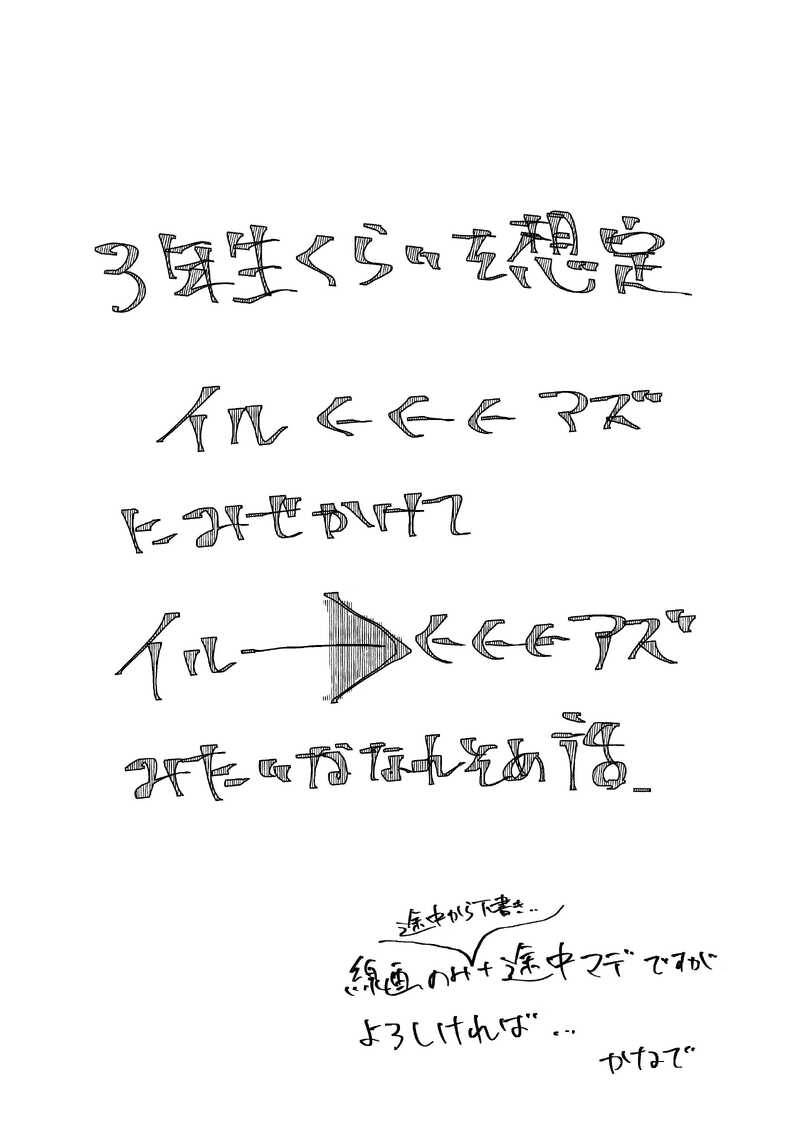 3年生くらいを想定
イル←←←アズ
にみせかけて
イル→←←←アズ
みたいな なれそめ話_
途中から下書き..
線画のみ+途中マデですが
よろしければ…
かなで